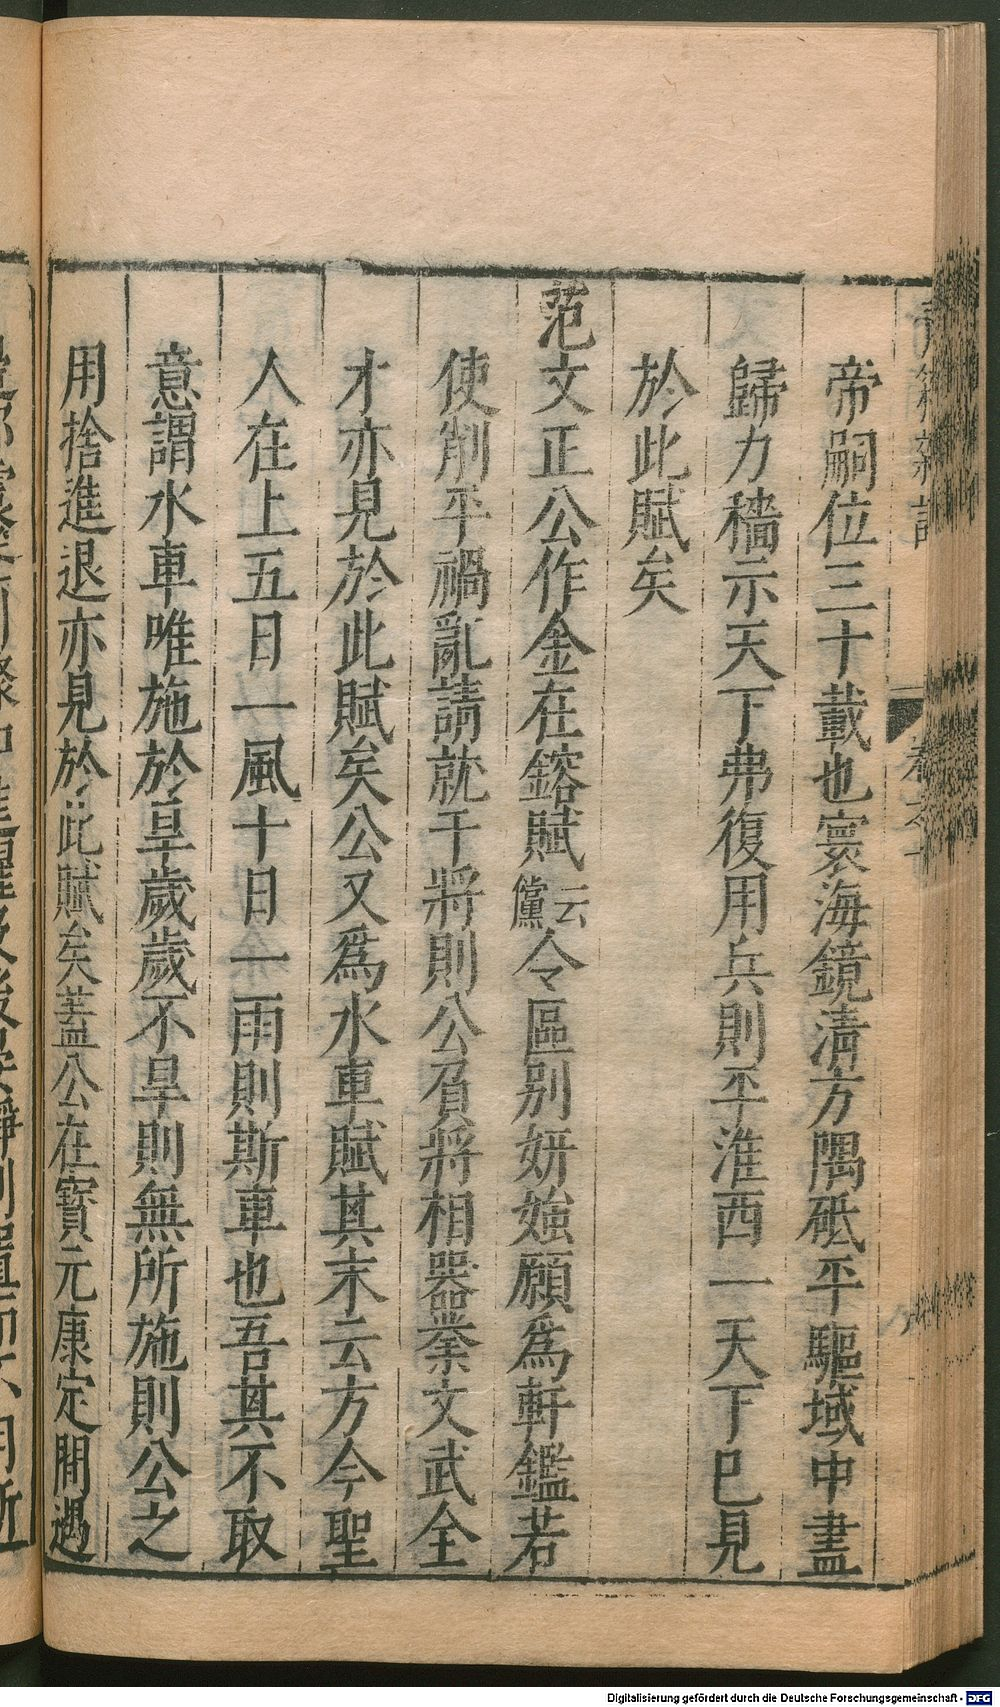 帝嗣位三十載也寰海鏡淸方隅砥平驅域中盡
歸力穡示天下弗復用兵則平淮西一天下已見
於此賦矣
范文正公作金在鎔賦云儻令區别妍媸願爲軒鑑若
使削平禍亂請就干將則公負將相器業文武全
才亦見於此賦矣公又爲水車賦其末云方今聖
人在上五日一風十日一雨則斯車也吾其不取
意謂水車唯施於旱歲歲不旱則無所施則公之
用捨進退亦見於此賦矣蓋公在寳元康定間遇
Digitalisierung gefördert durch die Deutsche Forschungsgemeinschaft - DFG